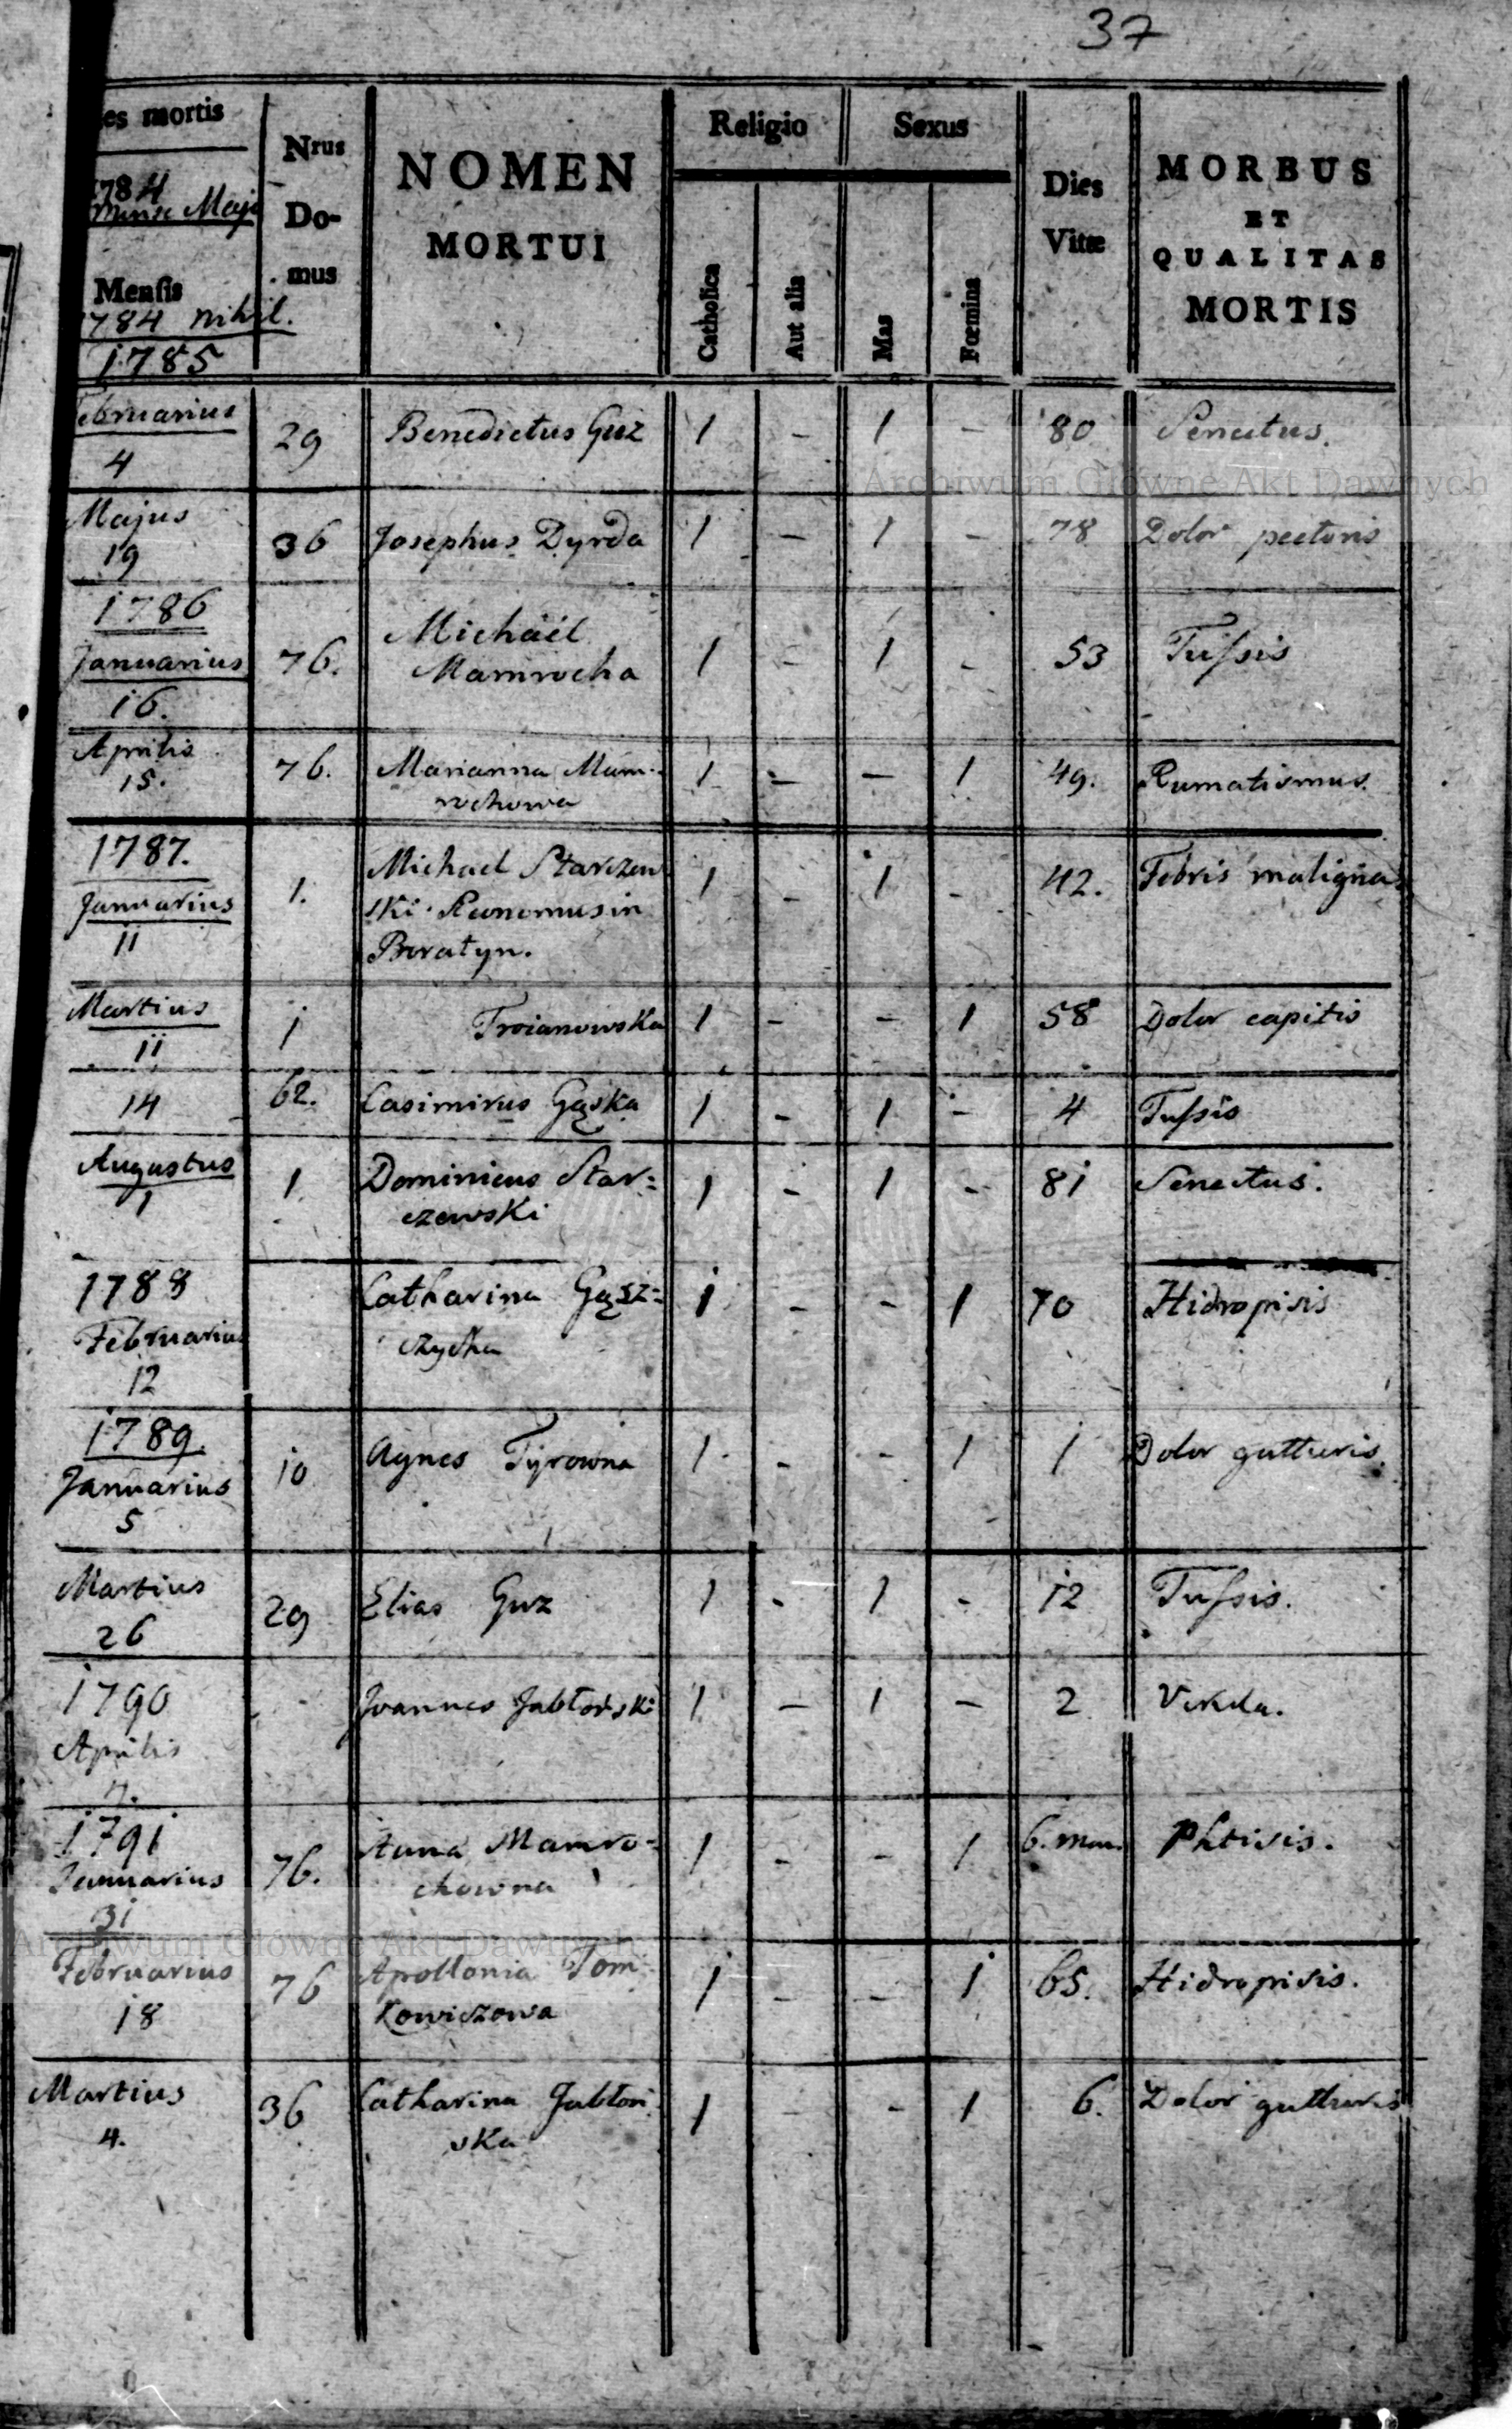 37
es mortis
Nrus Domus
NOMEN MORTUI
Religio
Sexus
Dies Vitæ
MORBUS ET QUALITAS MORTIS
1784
Mense Maji
Mensis
1784 nihil.
1785
Catholica
Aut alia
Mas
Fœmina
Februarius 4 29 Benedictus Guz 1 - 1 - 80 Senectus.
Archiwum Główne Akt Dawnych
Majus 19 36 Josephus Dyrda 1 - 1 - 78 Dolor pectoris
1786
Januarius 16. 76. Michäel
Mamrocha 1 - 1 - 53 Tussis
Aprilis 15. 76. Marianna Mam-
rochowa 1 - - 1 49. Rumatismus.
1787.
Januarius 11 1. Michael Starzew
ski in
Boratyn. 1 - 1 - 42. Febris maligna
Martius 11 1 Troianowska 1 - - 1 58 Dolor capitis
14 62. Casimirus Gąska 1 - 1 - 4 Tussis
Augustus 1 1. Dominicus Star=
czewski 1 - 1 - 81 Senectus.
1788
Februarius 12 Catharina Gąsz=
1 - - 1 70 Hidropisis
1789.
Januarius 5 10 Agnes Tyrowna 1 - - 1 1 Dolor gutturis
Martius 26 29 Elias Guz 1 - 1 - 12 Tussis.
1790
Aprilis 7. Joannes Jabłoński 1 - 1 - 2
1791
Januarius 31 76. Anna Mamro=
chowna 1 - - 1 6. men. Phtisis.
Archiwum Główne Akt Dawnych
Februarius 18 76 Apollonia Tom
kowiczowa 1 - - 1 65. Hidropisis.
Martius 4. 36 Catharina Jabłoń
ska 1 - - 1 6. Dolor gutturis